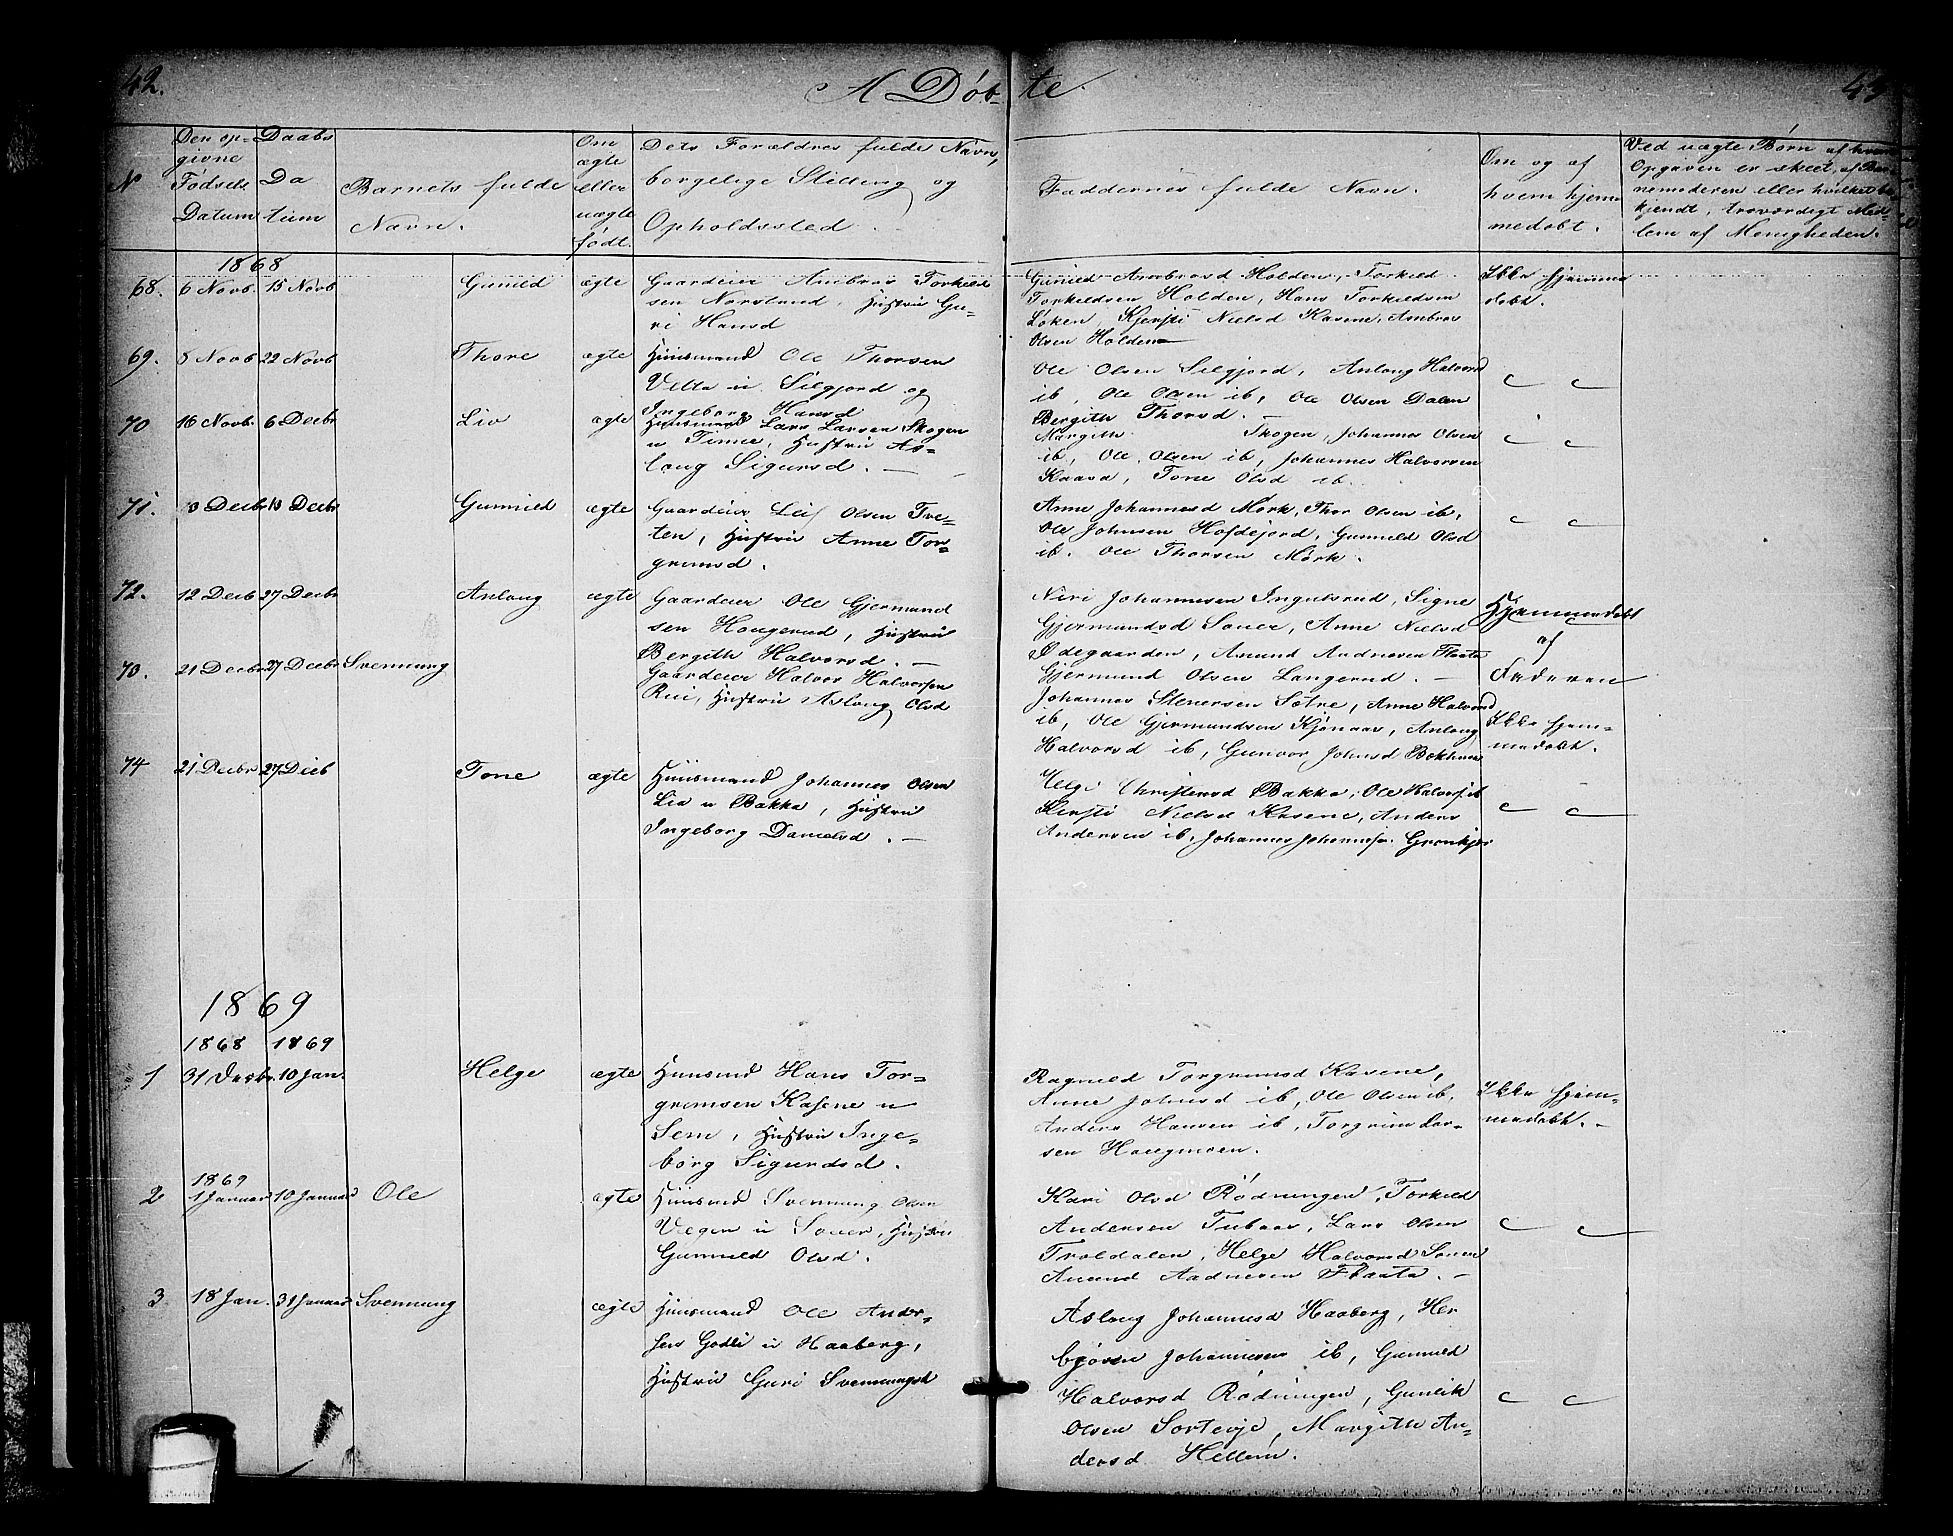 42.
A Døb-
te.
N
Den op-
givne
Fødsels
Datum
Daabs
Da
tum
Barnets fulde
Navn.
Om
ægte
eller
uægte
født.
Dets Forældres fulde Navn,
borgelige Stilling og
Opholdssted.
Faddernes fulde Navn.
Om og af
hvem hjem
medøbt.
Ved uægte Børn af hvem
Opgaven er skeet, af Bar-
nemoderen eller hvilket be-
kjendt, troværdigt Med-
lem af Menigheden.
1868
68. 6 Novb. 15 Novb Gunild ægte
Gaardeier Ambros Torkild
sen Norsland, Hustru Gu-
ri Hansd
Gunild Ambrosd Holden, Torkild
Torkildsen Holden, Hans Torkildsen
Løken, Kjersti Nielsd Kasene, Ambros
Olsen Holden
Ikke hjemme
døbt.
69. 8 Novb 22 Novb Thore ægte
Huusmand Ole Thorsen
Velta u. Silgjord og
Ingeborg Hansd
Ole Olsen Silgjord, Anlaug Halvorsd
ib, Ole Olsen ib, Ole Olsen Dalen
Bergith Thorsd. —
c c
70 16 Novb. 6 Decbr Liv ægte
Huusmand Lars Larsen Skogen
u Tinne, Hustru As-
laug Sigursd. —
Margith Skogen, Johannes Olsen
ib, Ole Olsen ib, Johannes Halvorsen
Kaasa, Tone Olsd ib.
c c
71. 3 Decbr 13 Decbr Gunnild ægte
Gaardeier Leif Olsen Tve-
ten, Hustru Anne Tor-
grimsd.
Anne Johannesd Mørk, Thor Olsen ib,
Ole Johnsen Hofdejord, Gunnild Olsd
ib. Ole Thorsen Mørk.
c c
72. 12 Decb 27 Decbr Anlaug ægte
Gaardeier Ole Gjermund
sen Haugerud, Hustru
Bergith Halvorsd. —
Niri Johannesen Ingulsrud, Signe
Gjermundsd Sauer, Anne Nielsd
Ødegaarden, Amund Andresen Flaata
Gjermund Olsen Langerud. —
Hjemmedøbt
af
Faderen
70. 21 Decbr 27 Decbr Svennung
Gaardeier Halvor Halvorsen
Rui, Hustru Aslaug Olsd
Johannes Stenersen Sætre, Anne Halvorsd
ib, Ole Gjermundsen Kjønaas, Anlaug
Halvorsd ib, Gunvor Johnsd Bakken
Ikke hjem-
medøbt.
74 21 Decbr 27 Decb Tone ægte
Huusmand Johannes Olsen
Lia u Bakka, Hustru
Ingeborg Danielsd. —
Helge Christensd Bakka, Ole Halvors ib
Kersti Nielsd Kasene, Anders
Andersen ib, Johannes Johannesen Grønkjær
c c
1869
1868 1869
1 31 Decbr. 10 Jan. Helge ægte
Huusmd Hans Tor-
grimsen Kasene u
Sem, Hustru Inge-
borg Sigurdsd.
Ragnild Torgrimsd Kasene,
Anne Johnsd ib, Ole Olsen ib,
Anders Hansen ib, Torgrim Lar-
sen Haugmoen.
Ikke hjem-
medøbt. —
1869
2 1 Januar 10 Januar Ole ægte
Huusmd Svennung Olsen
Vegen u Sauer, Hustru
Gunnild Olsd.
Kari Olsd Rødningen, Torkild
Andersen Tubaas, Lars Olsen
Troldalen, Helge Halvorsd Sauer
Amund Aadnesen Flaata. —
c c
3. 18 Jan. 31 Januar Svennung ægte
Huusmand Ole Ander-
sen Godli u Haaberg,
Hustru Guri Svennungsd
Aslaug Johannesd Haaberg, Her
bjørn Johannesen ib, Gunnild
Halvorsd Rødningen, Gunlik
Olsen Sorteøje, Margith An-
dersd Hellem.
c c